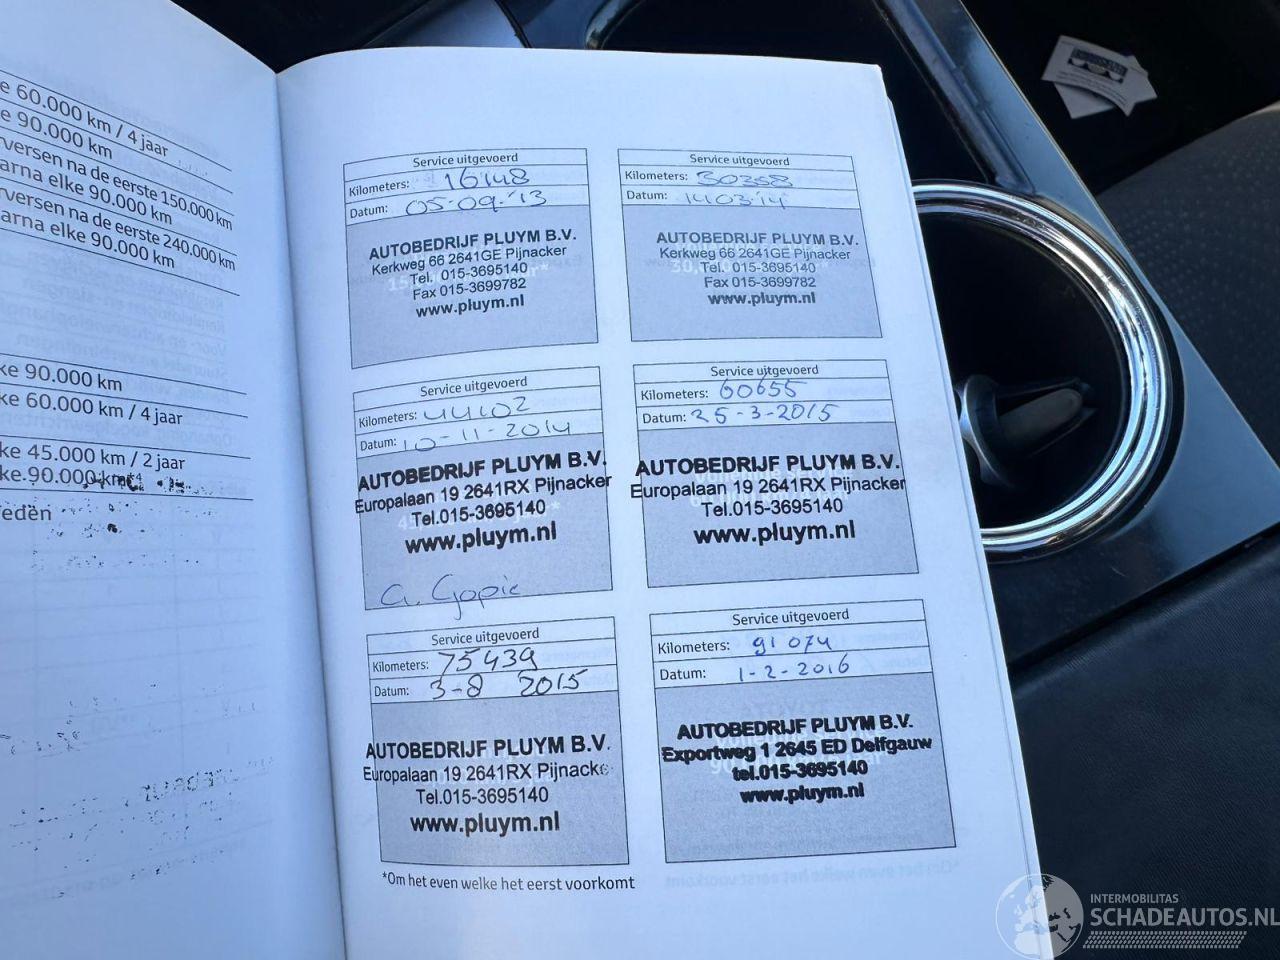 ke 60.000 km / 4 jaar
ke 90.000 km
rversen na de eerste 150.000 km
arna elke 90.000 km
rversen na de eerste 240.000 km
arna elke 90.000 km
ke 90.000 km
ke 60.000 km / 4 jaar
ke 45.000 km / 2 jaar
ke 90.000 km
edën
Service uitgevoerd
Kilometers: 16148
Datum: 05-09-'13
AUTOBEDRIJF PLUYM B.V.
Kerkweg 66 2641GE Pijnacker
Tel. 015-3695140
Fax 015-3699782
www.pluym.nl
Service uitgevoerd
Kilometers: 30358
Datum: 14 03 '14
AUTOBEDRIJF PLUYM B.V.
Kerkweg 66 2641GE Pijnacker
Tel. 015-3695140
Fax 015-3699782
www.pluym.nl
Service uitgevoerd
Kilometers: 44102
Datum: 10-11-2014
AUTOBEDRIJF PLUYM B.V.
Europalaan 19 2641RX Pijnacker
Tel.015-3695140
www.pluym.nl
Service uitgevoerd
Kilometers: 60655
Datum: 25-3-2015
AUTOBEDRIJF PLUYM B.V.
Europalaan 19 2641RX Pijnacker
Tel.015-3695140
www.pluym.nl
Service uitgevoerd
Kilometers: 75439
Datum: 3-8 2015
AUTOBEDRIJF PLUYM B.V.
Europalaan 19 2641RX Pijnacke
Tel.015-3695140
www.pluym.nl
Service uitgevoerd
Kilometers: 91074
Datum: 1-2-2016
AUTOBEDRIJF PLUYM B.V.
Exportweg 1 2645 ED Delfgauw
tel.015-3695140
www.pluym.nl
*Om het even welke het eerst voorkomt
INTERMOBILITAS
SCHADEAUTOS.NL